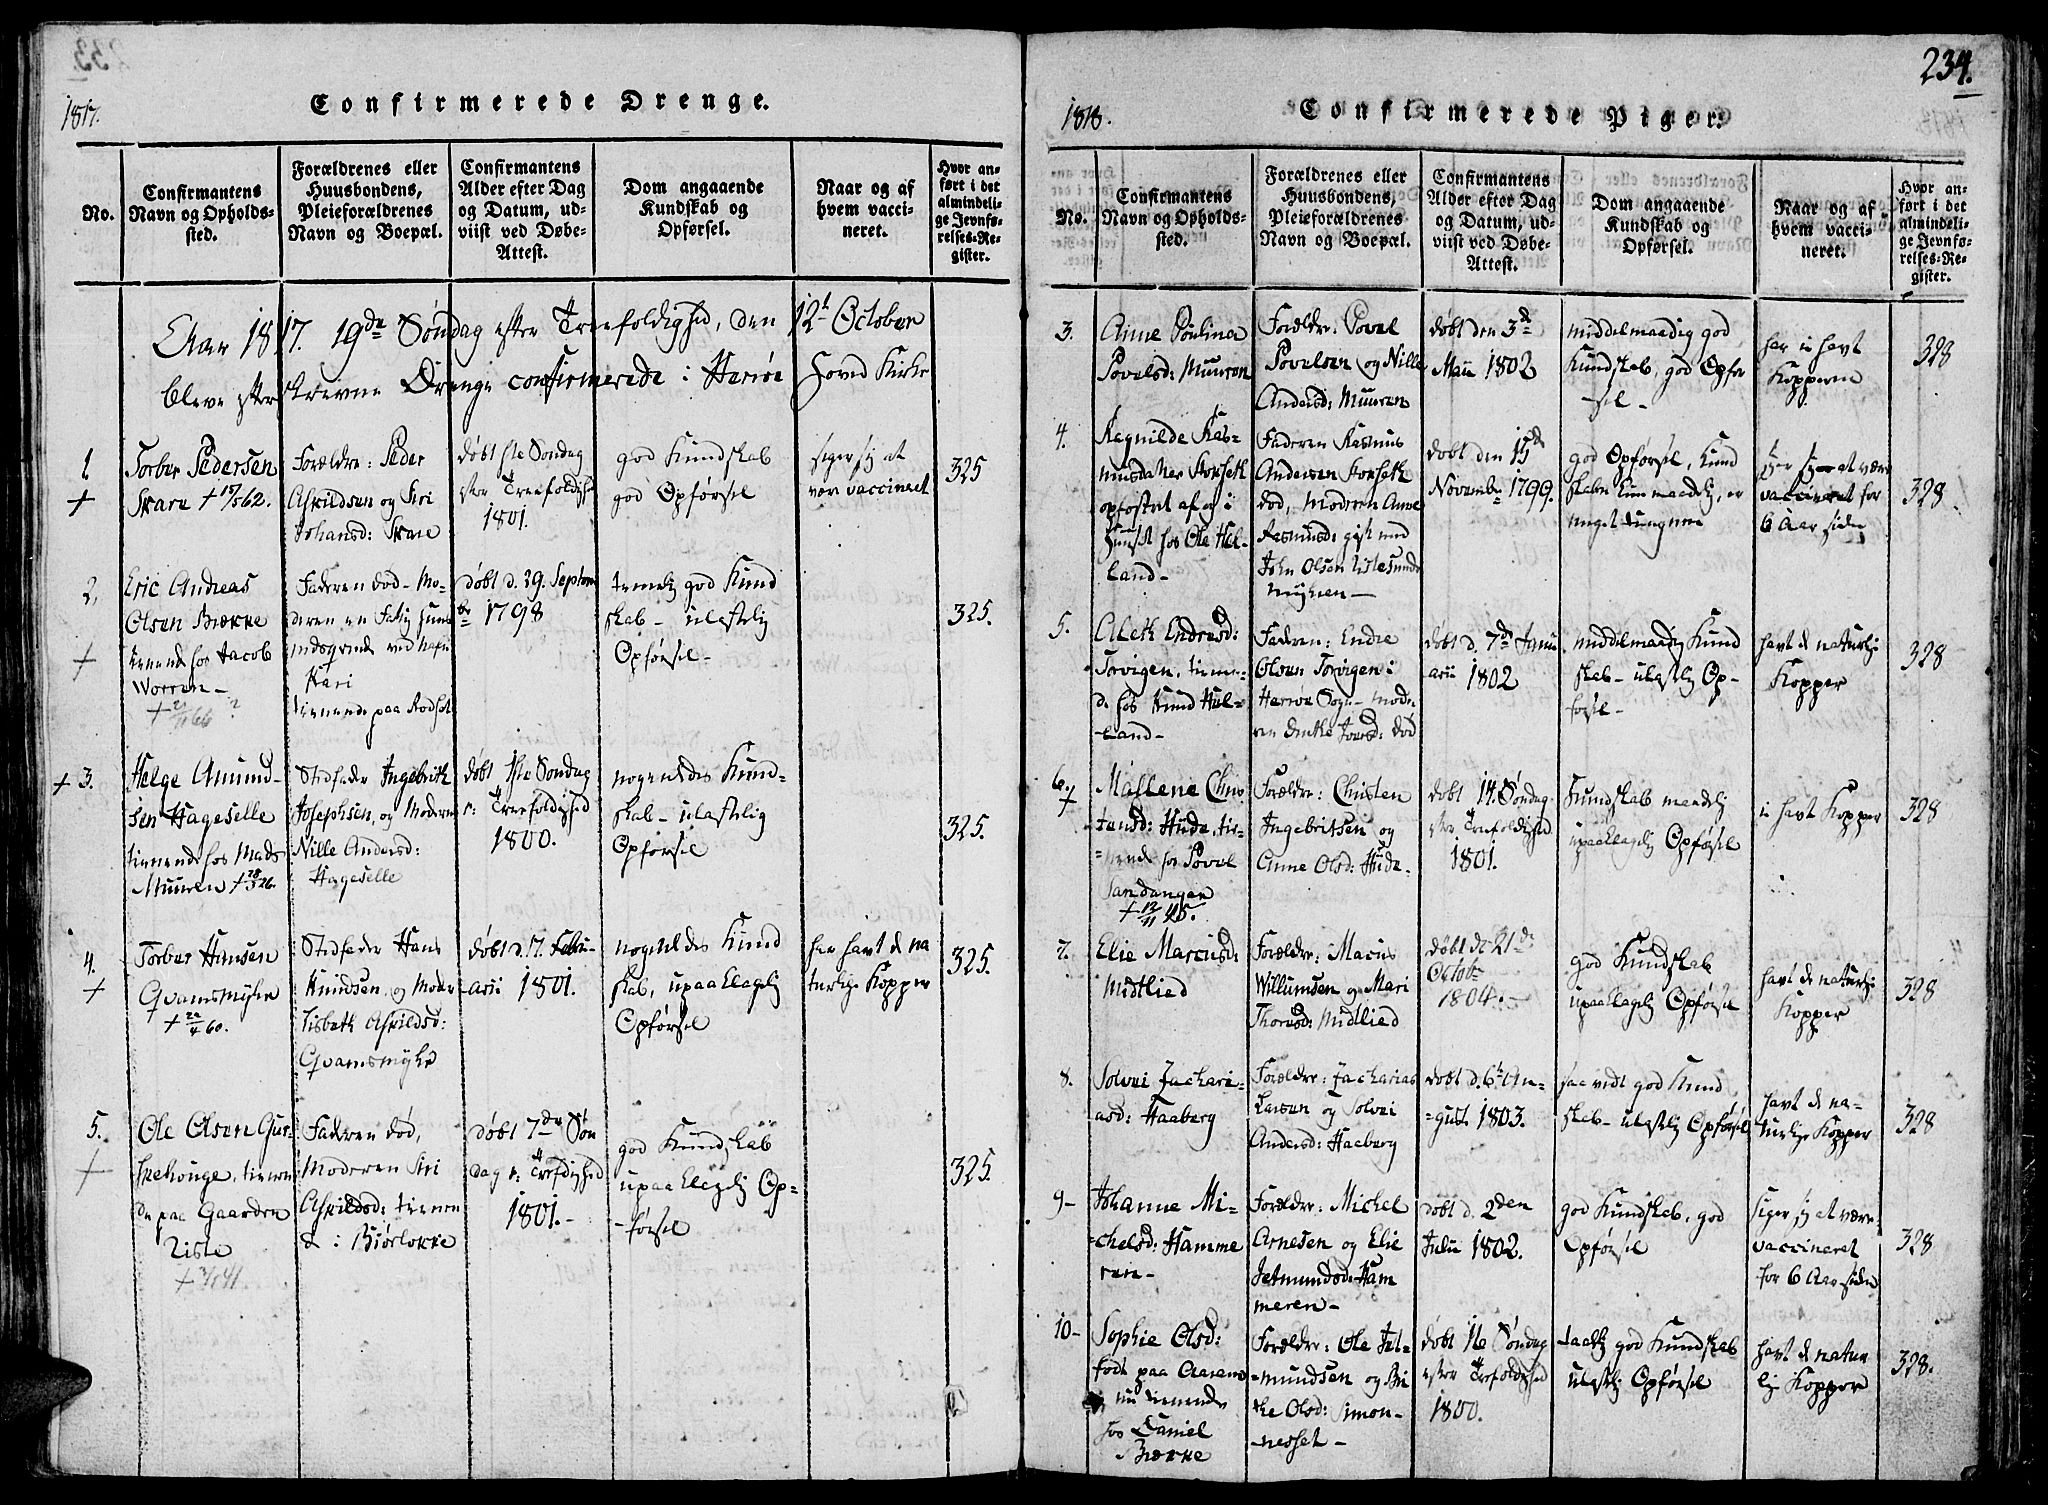 1817.
Confirmerede Drenge.
No.
Confirmantens
Navn og Opholds-
sted.
Forældrenes eller
Huusbondens,
Pleieforældrenes
Navn og Boepæl.
Confirmantens
Alder efter Dag
og Datum, ud-
viist ved Døbe-
Attest.
Dom angaaende
Kundskab og
Opførsel.
Naar og af
hvem vacci-
neret.
Hvor an-
ført i det
almindeli-
ge Jevnfø-
relses-Re-
gister.
Aar 1817. 19de Søndag efter Treefoldighed, den 12t October
bleve efterskrevne Drenge confirmerede i Herrøe Hoved Kirke
1.
+
Torber Pedersen
Skare + 17/5 62.
Forældre: Peder
Askildsen og Siri
Johansd: Skare
døbt 1ste Søndag
efter Treefoldighed
1801.
god Kundskab
god Opførsel
siger sig at
være vaccineret
325
2,
+
Eric Andreas
Olsen Brække
tienende hos Jacob
Worren -
Faderen død - Mo-
deren en Fattig Huus-
mandsqvinde ved Navn
Kari
tienende paa Rodset
døbt d. 29. Septem
br 1798
temelig god Kund
skab - ulastelig
Opførsel -
325.
+ 3.
Helge Amund-
sen Hageselle
tienende hos Mads
Muuren + 28/3 26.
Stedfader Ingebrikt
Josephsen, og Moderen
Nille Andersd:
Hageselle
døbt 1ste Søndag
e: Treefoldighed
1800.
nogenledes Kund-
skab - ulastelig
Opførsel
325.
4.
+
Torber Hansen
Qvamsmyhr
+ 22/4 60.
Stedfader Hans
Knudsen, og Moder
Lisbeth Askildsd:
Qvamsmyhr
døbt d. 17. Febru-
arii 1801.
nogenledes Kund
skab, upaaklagelig
Opførsel
har havt de na
turlige Kopper
325.
5.
+
Ole Olsen Gur-
skehouge, tienen
de paa Gaarden
Liste
Faderen død,
Moderen Siri
Askildsd: tienen
de i Biørlokke
døbt 7de Søn
dag e: Trefoldighed
1801. -
god Kundskab
upaaklagelig Op-
førsel
325.
234.
1818.
Confirmerede Piger.
No.
Confirmantens
Navn og Opholds-
sted.
Forældrenes eller
Huusbondens,
Pleieforældrenes
Navn og Boepæl.
Confirmantens
Alder efter Dag
og Datum, ud-
viist ved Døbe-
Attest.
Dom angaaende
Kundskab og
Opførsel.
Naar og af
hvem vacci-
neret.
Hvor an-
ført i det
almindeli-
ge Jevnfø-
relses-Re-
gister.
3.
Anne Poulina
Povelsd: Muuren
Forældre: Povel
Povelsen og Nille
Andersd: Muuren
døbt den 3de
Maii 1802
middelmaadig god
Kundskab, god Opfør
sel -
har ei havt
Kopperne
328
4.
Ragnilde Ras-
musdatter Storseth
opfostret af og i
Huuset hos Ole Hel-
land -
Faderen Rasmus
Andersen Storseth
død, Moderen Anne
Rasmusd: gift med
John Olsen
døbt den 15de
November 1799.
god Opførsel, Kund
skaben kun maadelig, er
meget tungnem
siger sig at være
vaccineret for
6 Aar siden
328
5.
Aleth Endresd:
Torvigen, tienen-
de hos Knud Hel-
land -
Faderen: Endre
Olsen Torvigen i
Herrøe Sogn - mode
ren Iversd: død
døbt d. 7de Janu
arii 1802
middelmaadig Kund
skab - ulastelig Op-
førsel -
havt de naturlige
Kopper
328
6.
+
Mallene Chris
tensd: Hide, tie-
nende hos Povel
Sandanger
+ 12/11 45.
Forældre: Christen
Ingebritsen og
Anne Olsd: Hide.
døbt 14. Søndag
efter Treefoldighed
1801.
Kundskab maadelig
upaaklagelig Opførsel
ei havt Kopper
328
7.
Elie Marcusd:
Midtlied
Forældre: Macus
Willumsen og Mari
Thoresd: Midtlied
døbt de 21de
Octobr
1804. -
god Kundskab
upaaklagelig Opførsel
havt de naturlige
Kopper
328
8.
Solvei Zachari-
asd: Haaberg
Forældre: Zacharias
Larsen og Solvei
Andersd: Haaberg
døbt d. 6te Au-
gust 1803.
saa vidt god Kund
skab - ulastelig Opførsel
havt de na-
turlige Kopper
328
9 -
Johanne Mi-
chelsd: Hamme
ren -
Forældre: Michel
Arnesen og Elie
Jetmundsd: Ham
meren -
døbt d. 2den
Julii 1802.
god Kundskab, god
Opførsel
siger sig at være
vaccineret
for 6 Aar siden
328
10 -
Sophie Olsd:
født paa Aarem
nu tienende
hos Daniel
Brække
Forældre: Ole Jet-
mundsen og Bri
the Olsd: Simon-
nesset -
døbt 16 Søndag
efter Trefoldighed
1800.
taalig god Kundskab
ulastelig Opførsel
havt de natur
lige Kopper
328.